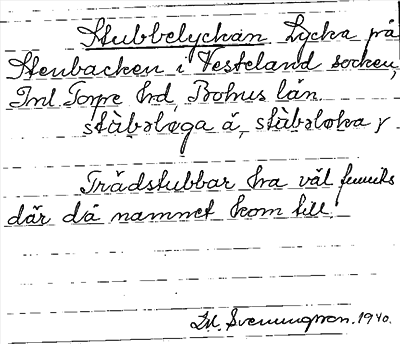 Stubbelyckan Lycka på
Stenbacken i Vesteland socken,
Inl. Torpe hd, Bohus län.
stàbəlæga á, stàbəloka γ
Trädstubbar ha väl funnits
där då namnet kom till.
M. Svenungsson. 1940.